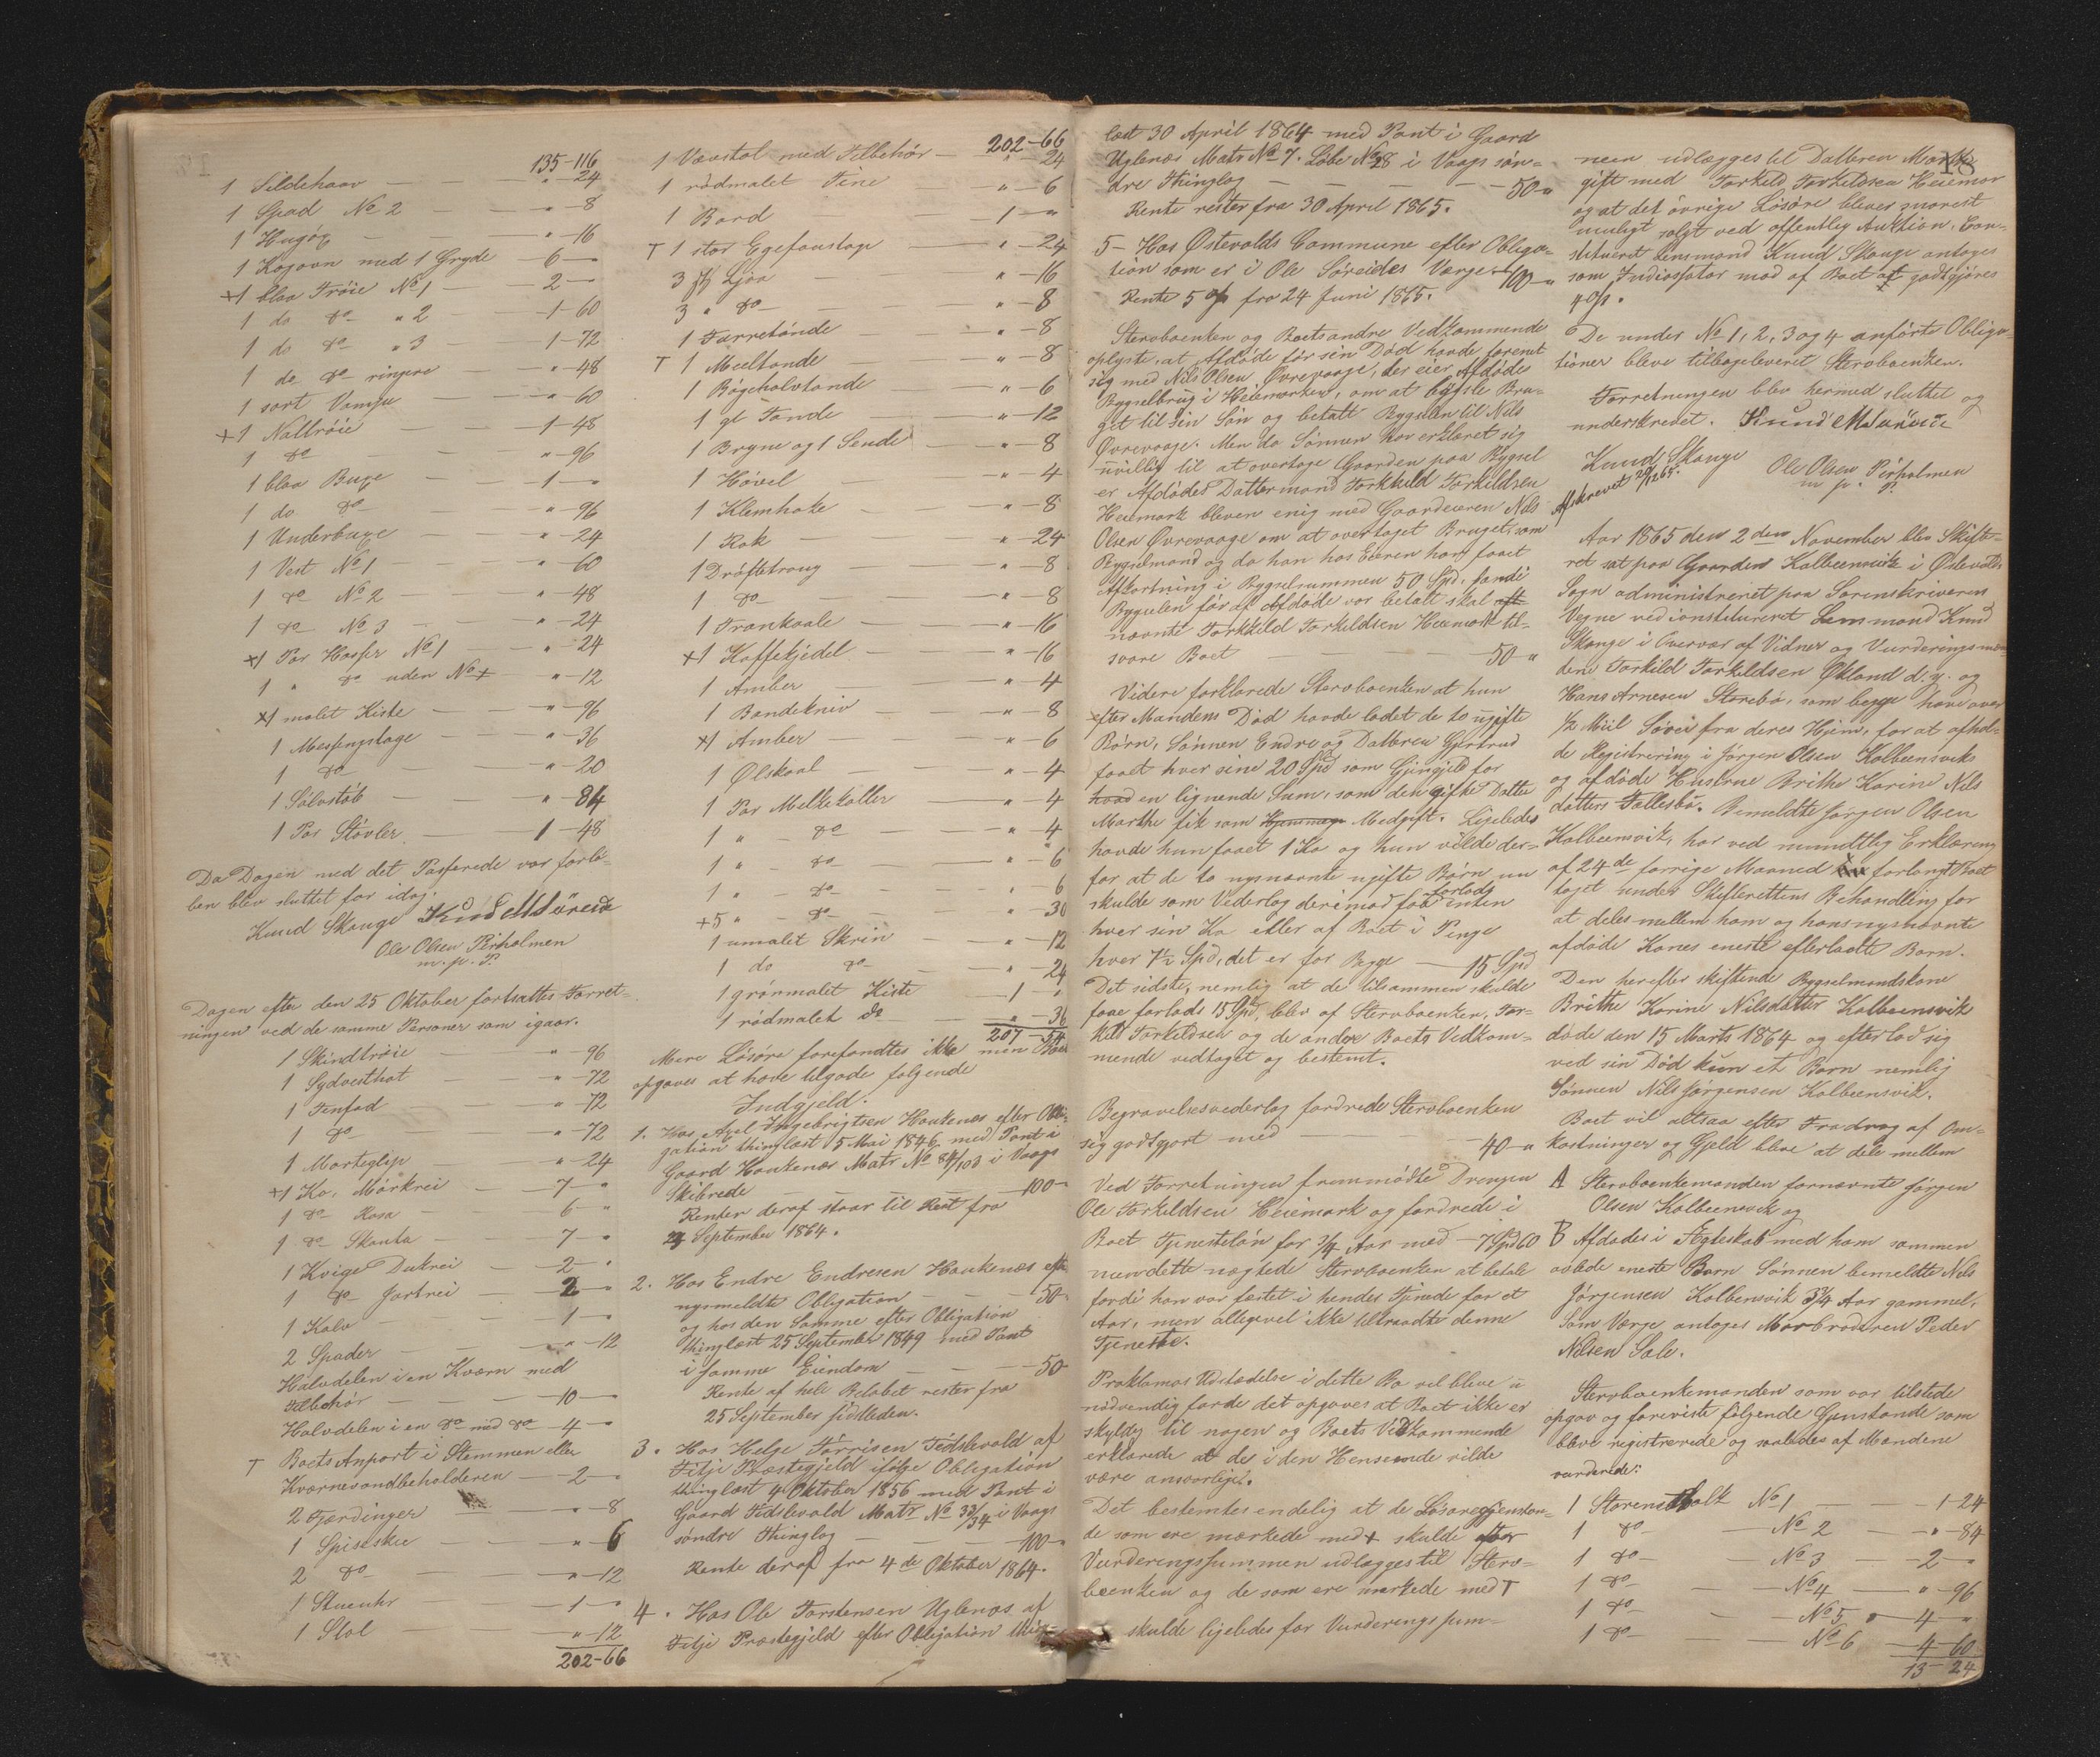 135-116
1 Sildehaav — — " - 24
1 Spad No 2 — — " - 8
1 Hugøg — — " - 16
1 Kogovn med 1 Gryde — 6 - "
+1 blaa Trøie No 1 — 2 - "
1 do do " 2 — 1 - 60
1 do do " 3 — 1 - 72
1 do do ringere — " - 48
1 sort Vamse — " - 60
+1 Nattrøie — 1 - 48
1 do — " - 96
1 blaa Buxe — 1 - "
1 do do — " - 96
1 Underbuxe — " - 24
1 Vest No 1 — " - 60
1 do No 2 — " - 48
1 do No 3 — " - 24
+1 Par Hoser No 1 — " - 24
1 " do uden No — " - 12
+1 malet Kiste — " - 96
1 Messingstage — " - 36
1 do — " - 20
1 Sølvstøb — " - 84
1 Par Støvler — 1 - 48
Da Dagen med det Passerede var forlø-
ben blev sluttet for idag.
Knud Skauge Knud M Søreide
Ole Olsen Pirholmen
m. p. P.
Dagen efter den 25 Oktober fortsattes Forret-
ningen ved de samme Personer som igaar.
1 Skindtrøie — " - 96
1 Sydvesthat — " - 72
1 Tinfad — " - 72
1 do — " - 72
1 Morteglip — " - 24
+1 Ko, Mørkrei — 7 - "
1 do Rosa — 6 - "
1 do Skauta — 7 - "
1 Kvige Dukrei — 2 - "
1 do Jartrei — 2 - "
1 Kalv — 1 - "
2 Spader — " - 12
Halvdelen i en Kværn med
Tilbehør — 10 - "
Halvdelen i en do med do — 4 - "
T Boets Anport i Stemmen eller
Kværnevandbeholderen — 2 - "
2 Fjerdinger — " - 8
1 Spiseskee — " - 6
2 do — " - 12
1 Stueuhr — 1 - "
1 Stol — " - 12
202-66
202-66
1 Vævstol med Tilbehør — " - 24
1 rødmalet Tine — " - 6
1 Bord — 1 - "
T 1 stor Egefoustage — " - 24
3 stk Ljaa — " - 16
3 " do — " - 8
1 Tørretønde — " - 8
T 1 Meeltønde — " - 8
1 Bøgeholstønde — " - 6
1 gl Tønde — " - 12
1 Bryne og 1 Sende — " - 8
1 Høvel — " - 4
1 Klemhake — " - 8
1 Rok — " - 24
1 Drøftetroug — " - 8
1 do — " - 8
1 Trankoale — " - 16
+1 Kaffekjedel — " - 16
1 Amber — " - 4
1 Bandekniv — " - 8
+1 Amber — " - 6
1 Ølskaal — " - 4
1 Par Melkekoller — " - 4
1 " do — " - 4
1 " do — " - 6
1 " do — " - 6
+5 " do — " - 30
1 umalet Skrin — " - 12
1 do do — " - 24
1 grønmalet Kiste — 1 - "
1 rødmalet do — " - 36
207-54
Mere Løsøre forefandtes ikke men Boet
opgaves at have tilgode følgende
Indgjeld.
1. Hos Axel Ingebrigtsen Haukenæs efter Obli-
gation thinglæst 15 Mai 1846 med Pant i
Gaard Haukenæs Matr No 84/103 i Vaags
Skibrede — 100 -
Renter deraf staar til Rest fra
29 September 1864.
2. Hos Endre Endresen Haukenæs efter
nysmeldte Obligation — 50 -
og hos den Samme efter Obligation
thinglæst 25 September 1849 med Pant
i samme Eiendom — 50
Rente af hele Beløbet rester fra
25 September sidstleden.
3. Hos Helge Tørrisen Tedslevold af
Fitje Præstegjeld ifølge Obligation
thinglæst 4 Oktober 1856 med Pant i
Gaard Tedslevold Matr No 33/34 i Vaags
søndre Thinglag — 100 -
Rente deraf fra 4de Oktober 1864.
4. Hos Ole Torstensen Uglenæs af
Fitje Præstegjeld efter Obligation thing-
læst 30 April 1864 med Pant i Gaard
Uglenæs Matr No 7. Løbe No 28 i Vaags søn-
dre Thinglag — 50 - "
Rente rester fra 30 April 1865.
5 - Hos Østevolds Commune efter Obliga-
tion som er i Ole Søreides Værge — 100 - "
Rente 5 % fra 24 Juni 1865.
Stervboenken og Boets andre Vedkommende
oplyste, at Afdøde før sin Død havde forenet
sig med Nils Olsen Øvrevaage, der eier Afdødes
Bygselbrug i Heiemarken, om at bygsle Bru-
get til sin Søn og betalt Bygselen til Nils
Øvrevaage. Men da Sønnen har erklæret sig
uvillig til at overtage Gaarden paa Bygsel
er Afdødes Dattermand Torkkild Torkildsen
Heiemark bleven enig med Gaardeieren Nils
Olsen Øvrevaage om at overtaget Bruget som
Bygselmand og da han hos Eieren har faaet
Afkortning i Bygselsummen 50 Spd. fordi
Bygselen før af Afdøde var betalt skal
nævnte Torkkild Torkildsen Heiemark til-
svare Boet — 50 - "
Videre forklarede Stervboenken at hun
efter Mandens Død havde ladet de to ugifte
Børn, Sønnen Endre og Datteren Gjertrud
faaet hver sine 20 Spd som Gjengjeld for
hvad en lignende Sum, som den gifte Datter
Marthe fik som Medgift. Ligeledes
havde hun faaet 1 Ko og hun vilde der-
for at de to nysnævnte ugifte Børn nu
skulde som Vederlag derimod faae forlods enten
hver sin Ko eller af Boet i Penge
hver 7½ Spd, det er for Begge — 15 Spd
Det sidste, nemlig at de tilsammen skulde
faae forlods 15 Spd, blev af Stervboenken, Tor-
kild Torkildsen og de andre Boets Vedkom-
mende vedtaget og bestemt.
Begravelsesvederlag fordrede Stervboenken
sig godtgjort med — 40 - "
Ved Forretningen fremmødte Drengen
Ole Torkildsen Heiemark og fordrede i
Boet Tjenesteløn for 3/4 Aar med — 7 Spd 60
men dette nægtede Stervboenken at betale
fordi han var fæstet i hendes Tjeneste for et
Aar, men alligevel ikke tiltraadte denne
Tjeneste.
Proklamas Udstædelse i dette Bo vil blive u-
nødvendig forde det opgaves at Boet ikke er
skyldig til nogen og Boets Vedkommende
erklærede at de i den Henseende vilde
være ansvarlige.
Det bestemtes endelig at de Løsøregjenstan-
de som ere mærkede med + skulde for
Vurderingssummen udlægges til Sterv-
boenken og de som ere mærkede med T
skulde ligeledes for Vurderingssum-
18
men udlægges til Datteren Marthe
gift med Torkild Torkildsen Heiemar
og at det øvrige Løsøre bleves snarest
muligt solgt ved offentlig Auktion. Con-
stitueret Lensmand Knud Skauge antoges
som Indcassator mod af Boet at godtgjøres
4 %.
De under No 1, 2, 3 og 4 anførte Obliga-
tioner bleve tilbageleveret Stervboenken.
Forretningen blev hermed sluttet og
underskrevet. Knud M Søreide
Knud Skauge
Ole Olsen Pirholmen
m. p. P.
Afskrevet 20/12 65.
Aar 1865 den 2den November blev Skifte-
ret sat paa Gaarden Kolbeensvik i Østevolds
Sogn administreret paa Sorenskriverens
Vegne ved constitueret Lensmand Knud
Skauge i Overvær af Vidner og Vurderingsmæn-
dene Torkild Torkildsen Økland d. y. og
Hans Arnesen Storebø, som begge have over
½ Miil Søvei fra deres Hjem, for at afhol-
de Registrering i Jørgen Olsen Kolbeensviks
og afdøde Hustrue Brithe Karine Nils
datters Fællesbo. Bemeldte Jørgen Olsen
Kolbeensvik, har ved mundtlig Erklæring
af 24de forrige Maaned forlangt Boet
taget under Skifterettens Behandling for
at deles mellem ham og hans nysnævnte
afdøde Kones eneste efterladte Barn.
Den herefter skiftende Bygselmandskone
Brithe Karine Nilsdatter Kolbeensvik
døde den 15 Marts 1864 og efterlod sig
ved sin Død kun et Barn nemlig
Sønnen Nils Jørgensen Kolbeensvik.
Boet vil altsaa efter Fradrag af Om-
kostninger og Gjæld blive at dele mellem
A Stervboenkemanden fornævnte Jørgen
Olsen Kolbeensvik og
B Afdødes i Ægteskab med ham sammen
avlede eneste Barn Sønnen bemeldte Nils
Jørgensen Kolbensvik 3¾ Aar gammel,
Som Værge antoges Morbroderen Peder
Nilsen Sale.
Stervboenkemanden som var tilstede
opgav og foreviste følgende Gjenstande som
bleve registrerede og saaledes af Mændene
vurderede:
1 No 1 — 1 - 24
1 do No 2 — " - 84
1 do No 3 — 2 - "
1 do No 4 — " - 96
1 do No 5 — 4 - "
1 do No 6 — 4 - 60
13 - 24